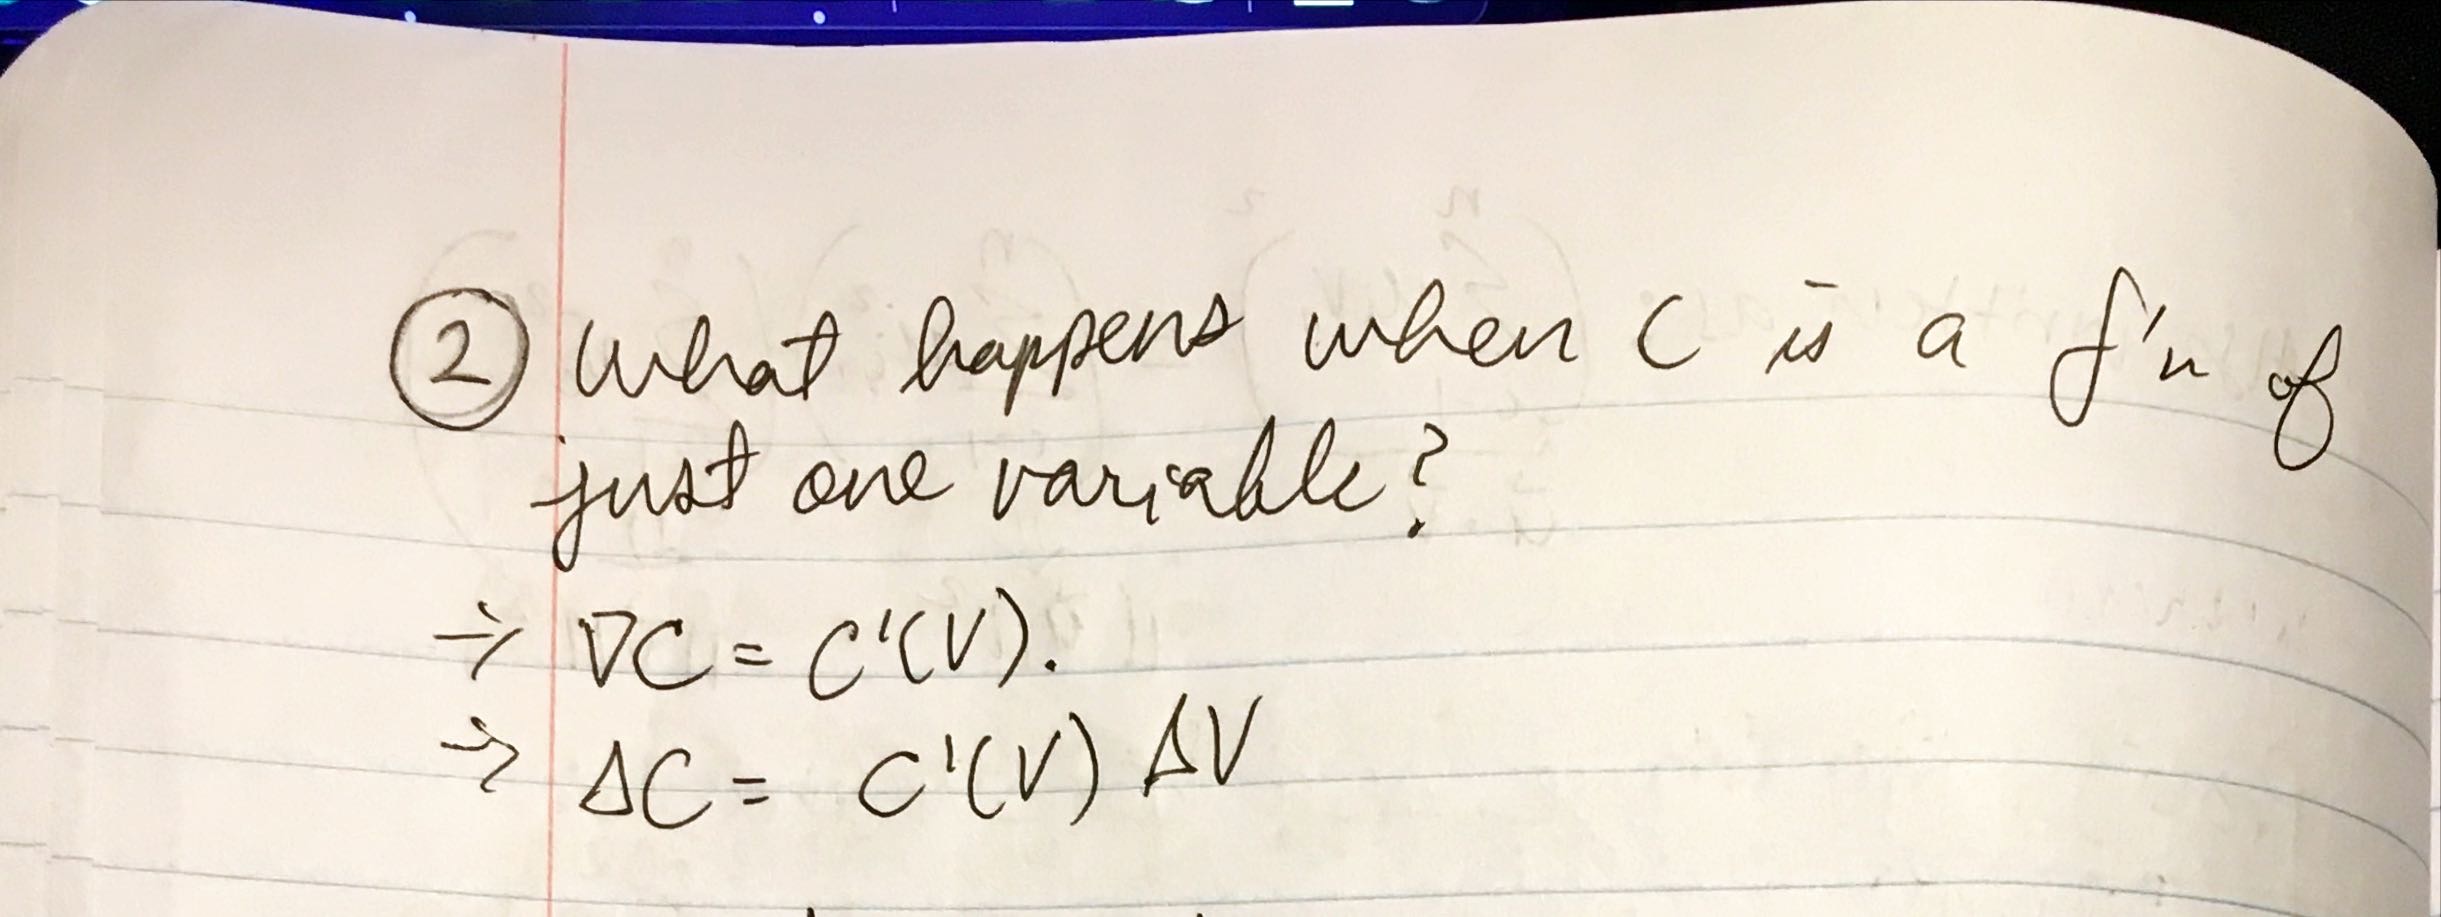 ② What happens when C is a f'n of
just one variable?
→ ∇C = C'(V).
→ ΔC = C'(V) ΔV